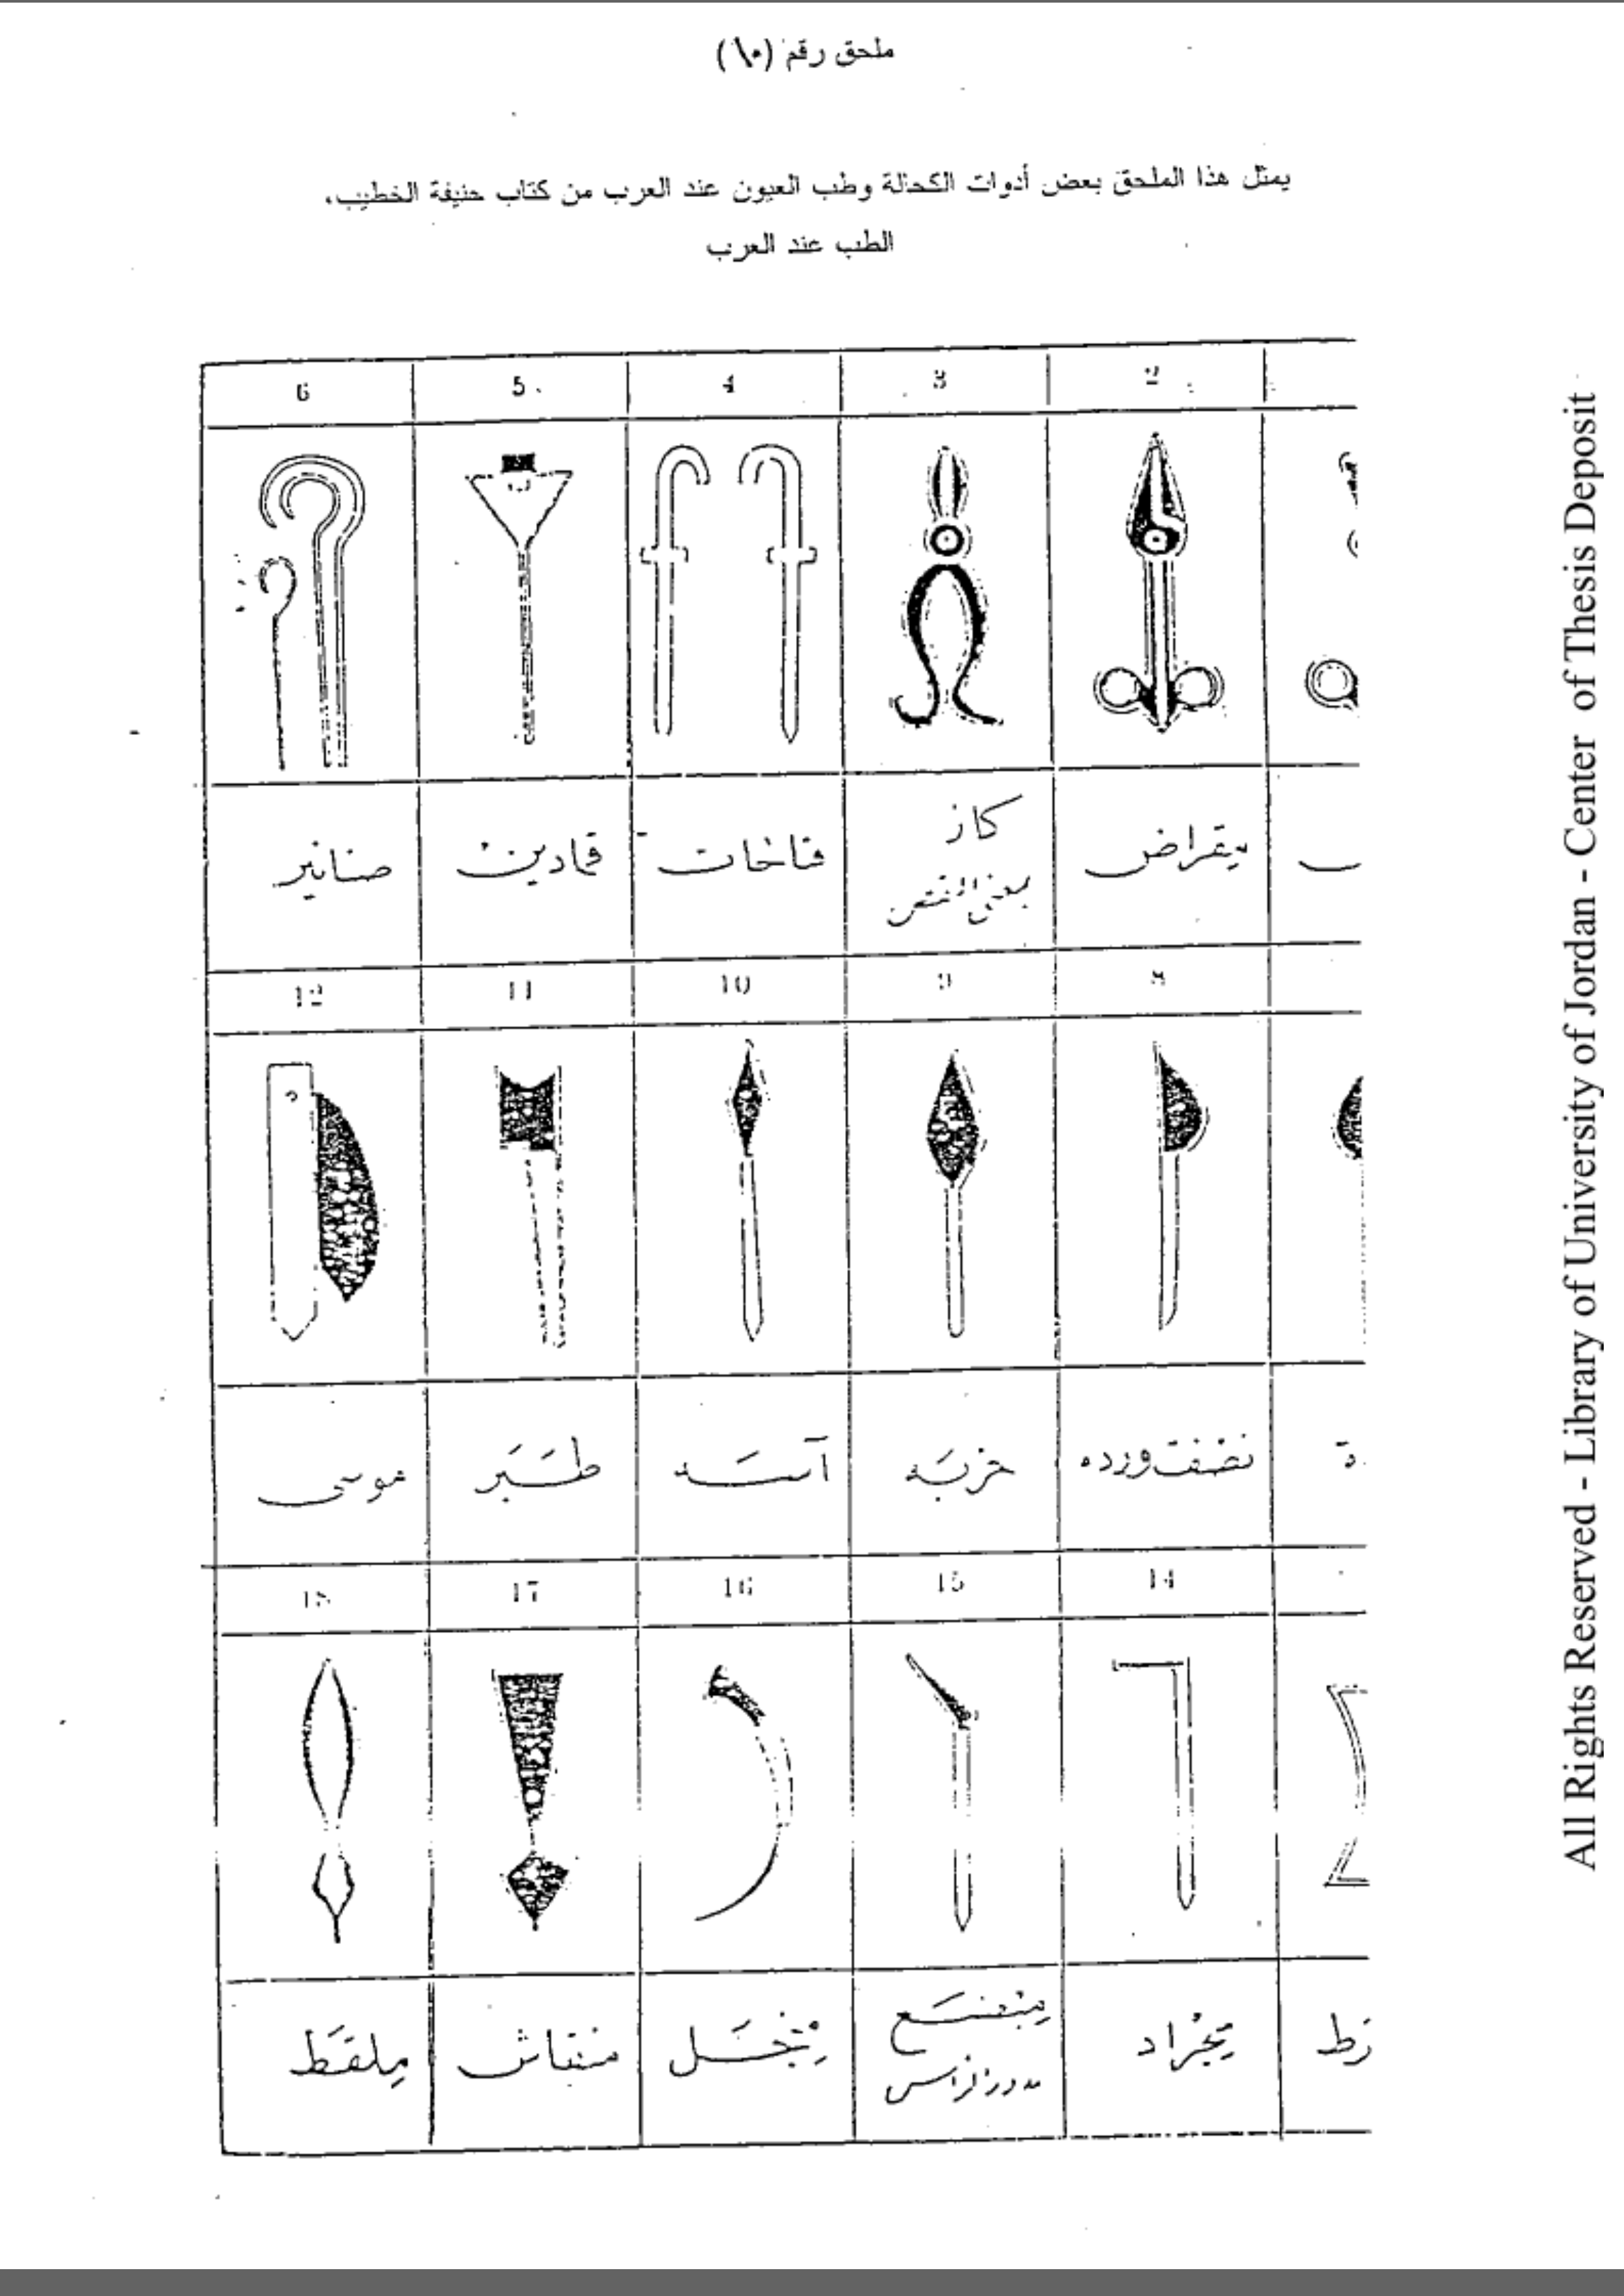 ملحق رقم (١٠)
يمثل هذا الملحق بعض أدوات الكحالة وطب العيون عند العرب من كتاب حنيفة الخطيب،
الطب عند العرب
2 3 4 5 6
مقراض كاز فتاخات قمادين صنانير
بمعنى المقص
8 9 10 11 12
نصف ورده حربه آسه طبر موسى
14 15 16 17 18
مجراد مبضع منجل منقاش ملقط
مدور الراس
All Rights Reserved - Library of University of Jordan - Center of Thesis Deposit